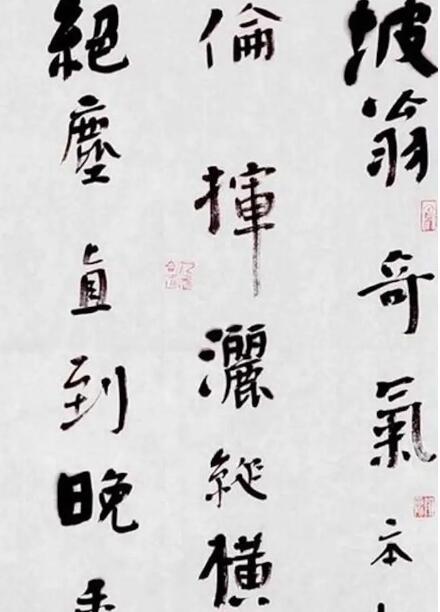 坡翁奇氣本
倫揮灑縱橫
絕塵直到晚